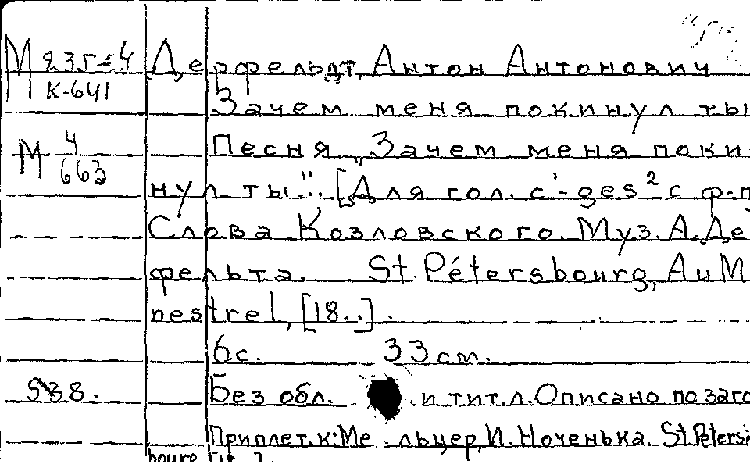 М 235-4 Дерфельдт, Антон Антонович
К-641 Зачем меня покинул ты
М 4 Песня „Зачем меня поки-
663
нул ты". [Для гол. c¹-ges² с ф-п
Слова Козловского. Муз. А. Де
фельта. St. Pétersbourg, Au M
nestrel, [18..].
6с. 33 см.
538. Без обл. и тит. л. Описано по заго
Приплет. к: Ме льцер, И. Ноченька. St. Petersb
bourg [18..]